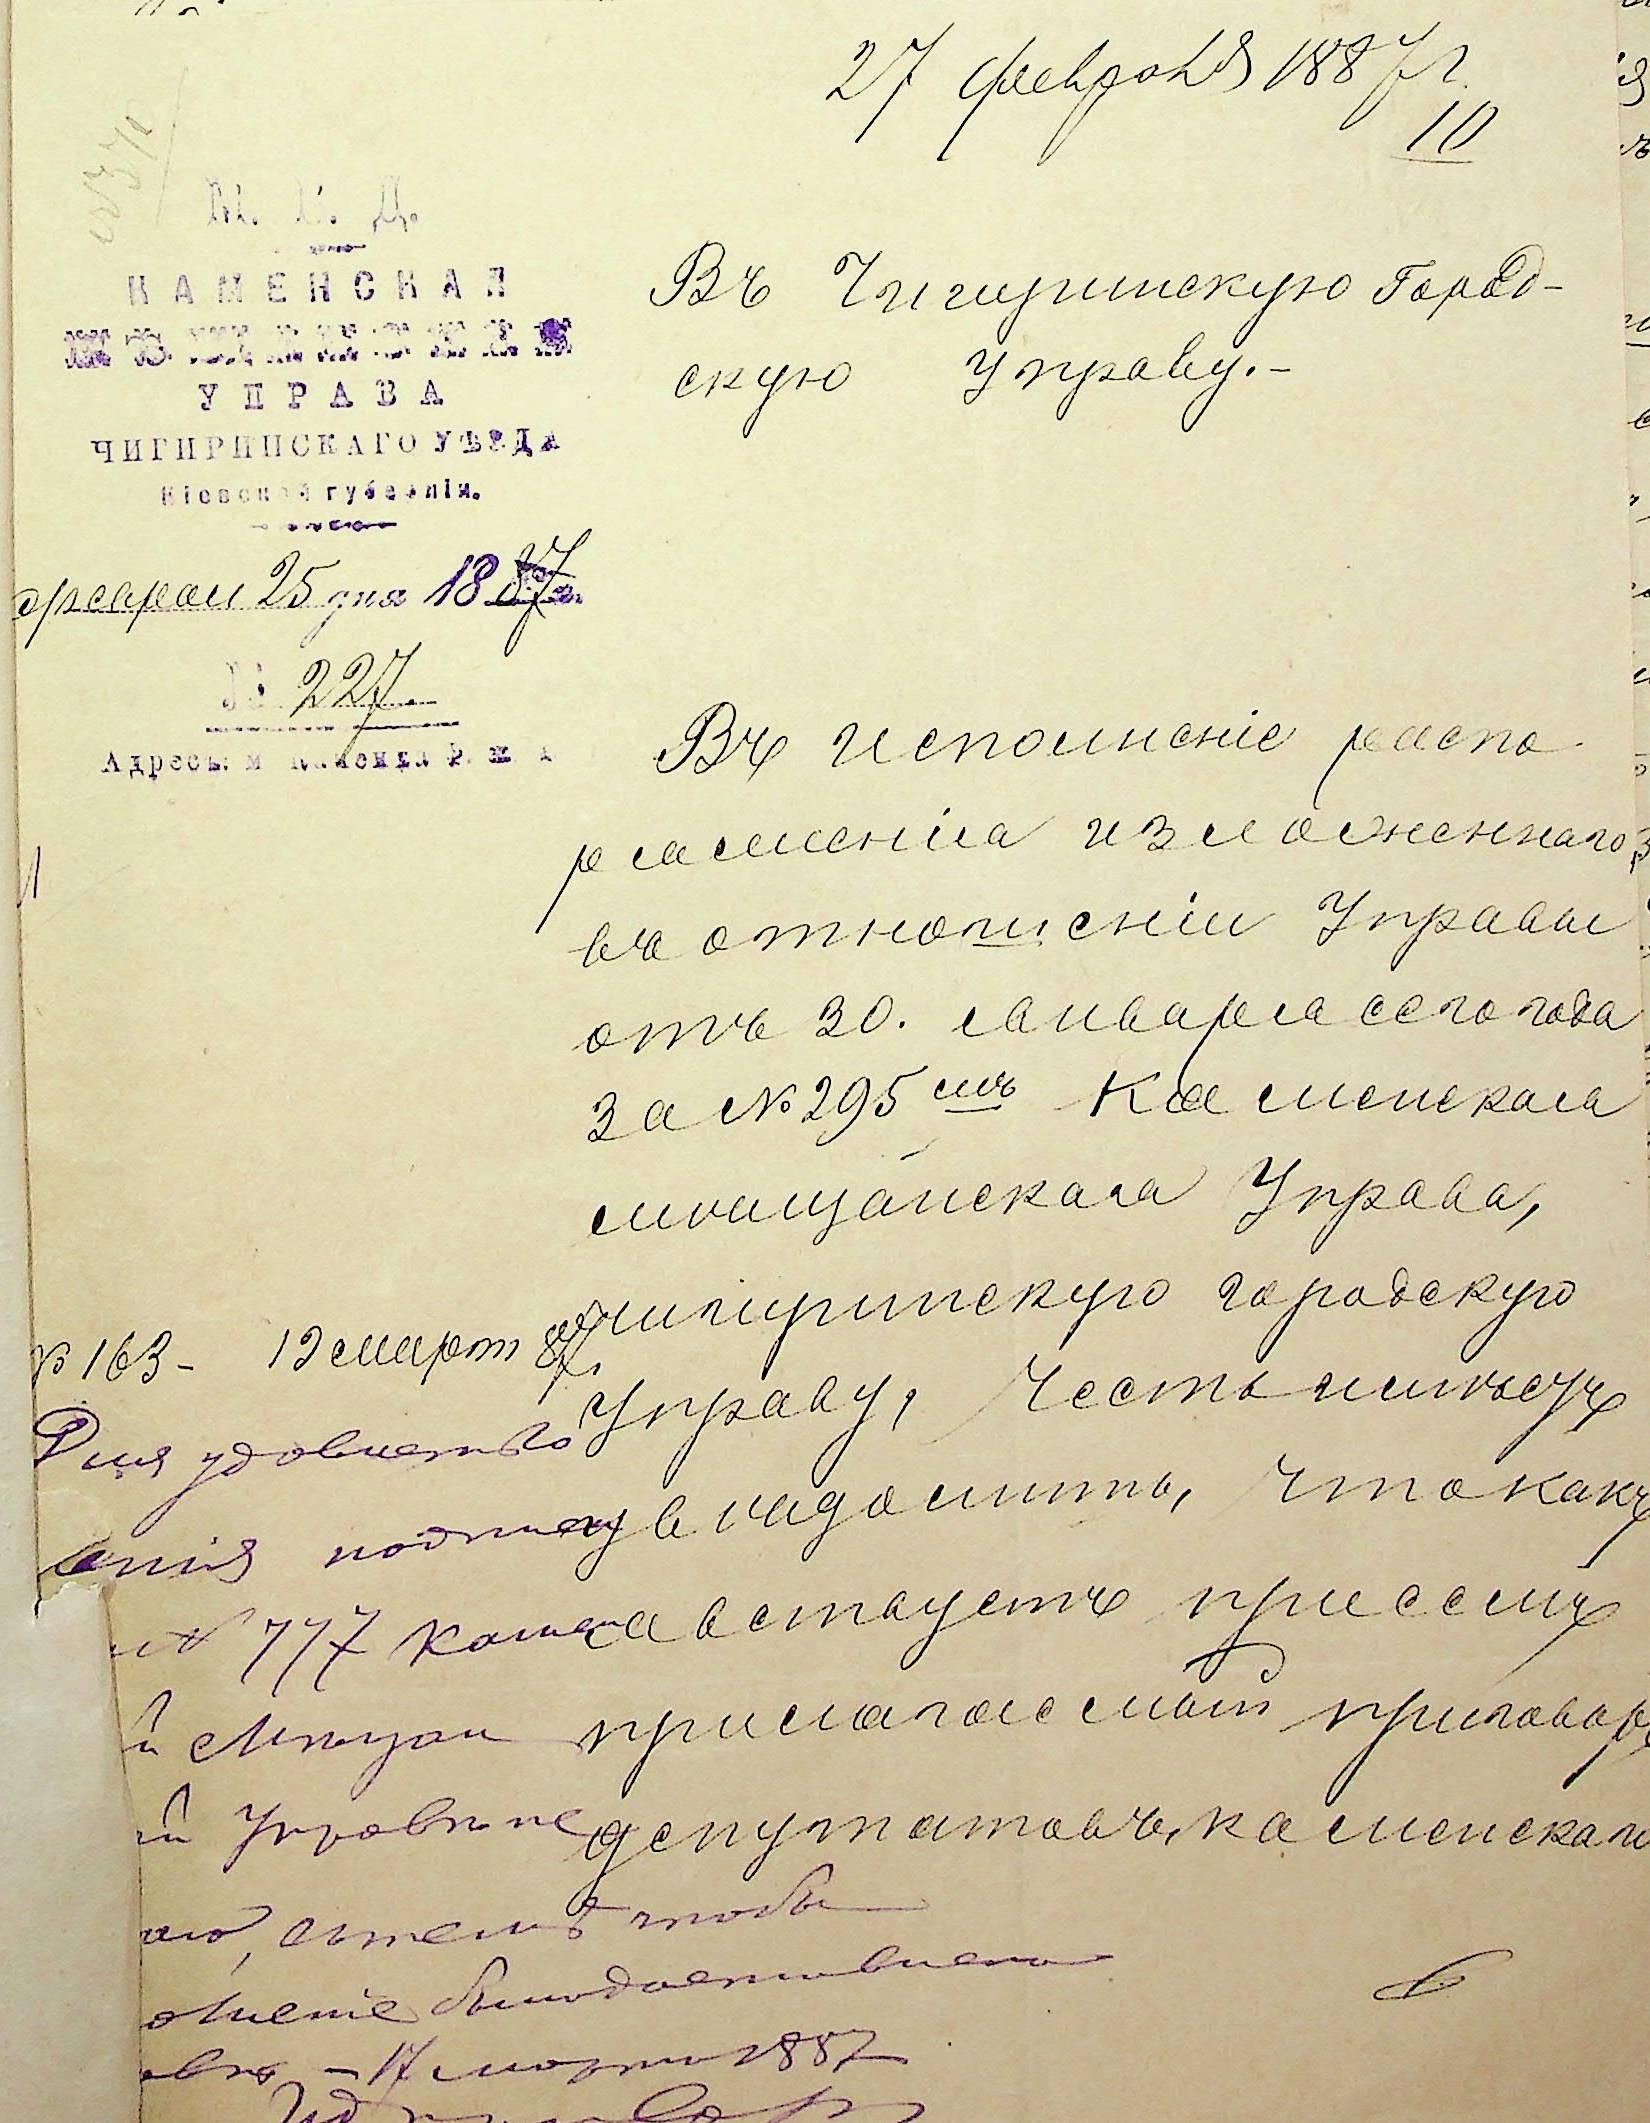 27 февраля 1887 г.
10
М. В. Д.
КАМЕНСКАЯ
МѢЩАНСКАЯ
УПРАВА
ЧИГИРИНСКАГО УѢЗДА
Кіевской губерніи.
февраля 25 дня 1887 г.
№ 227
Адресъ: м. Каменка
Въ Чигиринскую Город-
скую Управу.-
Въ исполненіе распо-
ряженія изложеннаго
въ отношеніи Управы
отъ 30. января сего года
за № 295 мъ Каменская
мѣщанская Управа,
чигиринскую городскую
Управу, честь имѣетъ
увѣдомить, что какъ
явствуетъ при семъ
прилагаемый приговоръ
депутатовъ, каменскаго
№ 163 - 12 март 87 г.
Для удовлетво
енія
№ 777
й Мѣщан
й Управы
съ тѣмъ чтобы
было доставлено
- 17 марта 1887